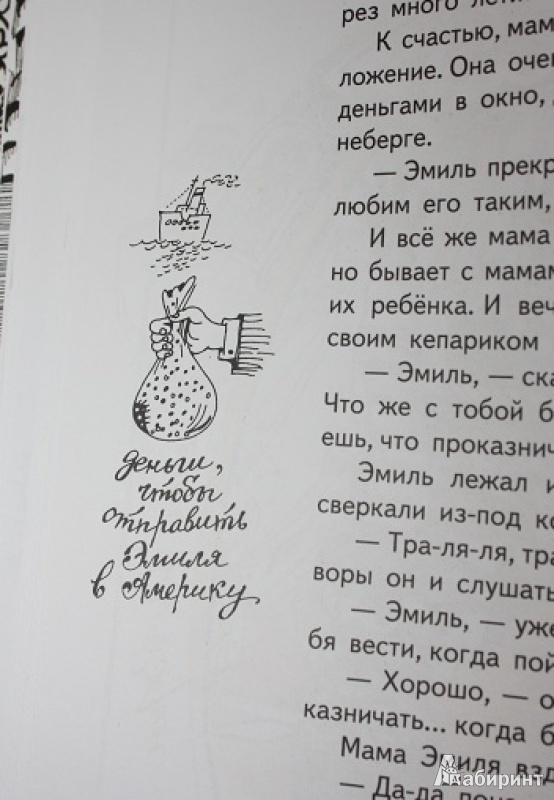 рез много
К счастью, мам
ложение. Она оче
деньгами в окно,
неберге.
— Эмиль прекр
любим его таким,
И всё же мама
но бывает с мамам
их ребёнка. И веч
своим кепариком
— Эмиль, — ска
Что же с тобой б
ешь, что проказнич
Эмиль лежал и
сверкали из-под к
— Тра-ля-ля, тра
воры он и слушать
— Эмиль, — уже
бя вести, когда пой
— Хорошо, — о
казничать... когда б
Мама Эмиля взд
— Да-да
деньги,
чтобы
отправить
Эмиля
в Америку
Лабиринт